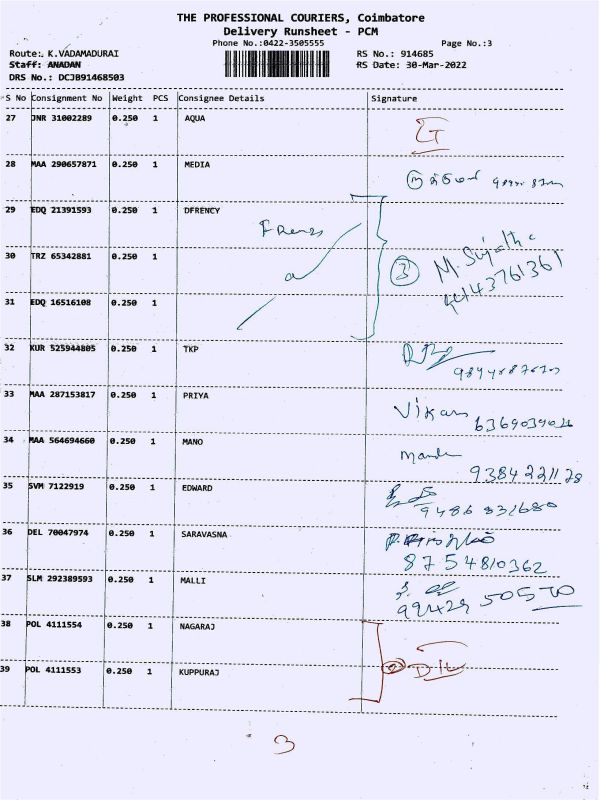 THE PROFESSIONAL COURIERS, Coimbatore
Delivery Runsheet - PCM
Phone No.:0422-3505555 Page No.:3
Route: K.VADAMADURAI RS No.: 914685
Staff: ANADAN RS Date: 30-Mar-2022
DRS No.: DCJB91468503
S No Consignment No Weight PCS Consignee Details Signature
27 JNR 31002289 0.250 1 AQUA
28 MAA 290657871 0.250 1 MEDIA
29 EDQ 21391593 0.250 1 DFRENCY
30 TRZ 65342881 0.250 1
3 M. Sujatha
9443761361
31 EDQ 16516108 0.250 1
32 KUR 525944805 0.250 1 TKP
33 MAA 287153817 0.250 1 PRIYA
Vikas
34 MAA 564694660 0.250 1 MANO
9384221128
35 SVM 7122919 0.250 1 EDWARD
9486832680
36 DEL 70047974 0.250 1 SARAVASNA
8754810362
37 SLM 292389593 0.250 1 MALLI
38 POL 4111554 0.250 1 NAGARAJ
39 POL 4111553 0.250 1 KUPPURAJ
3